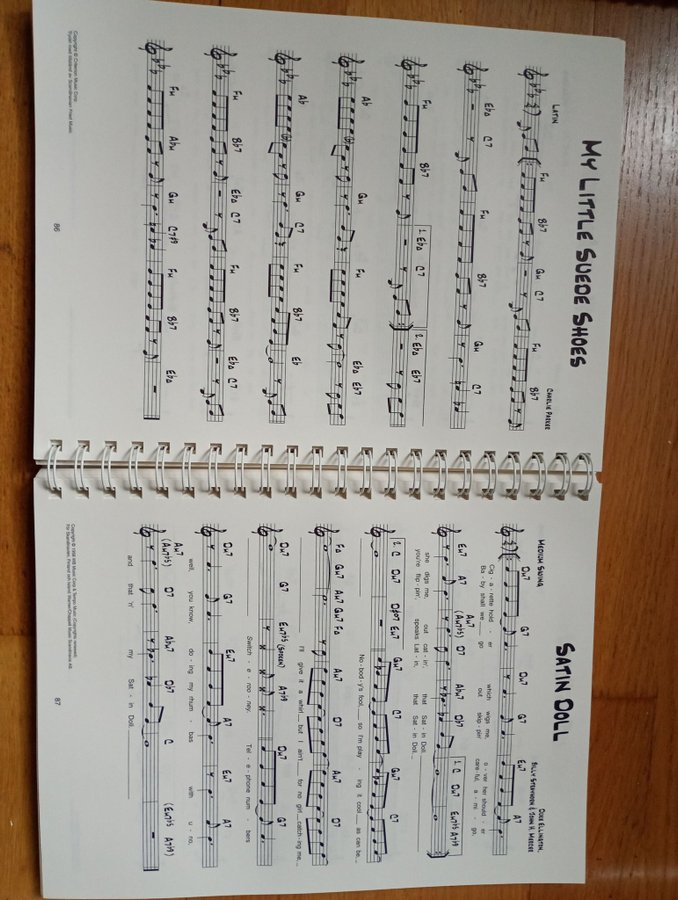 My Little Suede Shoes
Charlie Parker
Latin
Fm Bb7 Gm C7 Fm Bb7
EbΔ C7 Fm Bb7 Gm C7
Fm Bb7 1. EbΔ C7 2. EbΔ Eb7
Ab Gm Fm EbΔ Eb7
Ab Gm C7 Fm Bb7 Eb
Fm Bb7 EbΔ C7 Fm Bb7 EbΔ C7
Fm Abm Gm C7#9 Fm Bb7 EbΔ
Copyright © Criterion Music Corp
86
Satin Doll
Duke Ellington,
Billy Strayhorn & John H. Mercer
Medium Swing
Dm7 G7 Dm7 G7 Em7 A7
Cig - a - rette hold - er which wigs me, o - ver her should - er
Ba - by shall we go out skip - pin' care - ful, a - mi - go,
Em7 A7 Am7 (Am7b5) D7 Abm7 Db7 1. C Dm7 Em7b5 A7b9
she digs me, out cat - in', that Sat - in Doll.
you're flip - pin', speaks Lat - in, that Sat - in Doll.
2. C Dm7 D#o7 Em7 Gm7 C7 Gm7 C7
No - bod - y's fool, so I'm play - ing it cool as can be.
FΔ Gm7 Am7 Gm7 FΔ Am7 D7 Am7 D7
I'll give it a whirl but I ain't for no girl catch - ing me.
Dm7 G7 Em7b5 (Spoken) A7b9 Dm7 G7
Switch - e - roo - ney. Tel - e - phone num - bers
Dm7 G7 Em7 A7 Em7 A7
well, you know, do - ing my rhum - bas with u - no,
Am7 (Am7b5) D7 Abm7 Db7 C (Em7b5 A7b9)
and that 'n' my Sat - in Doll.
87